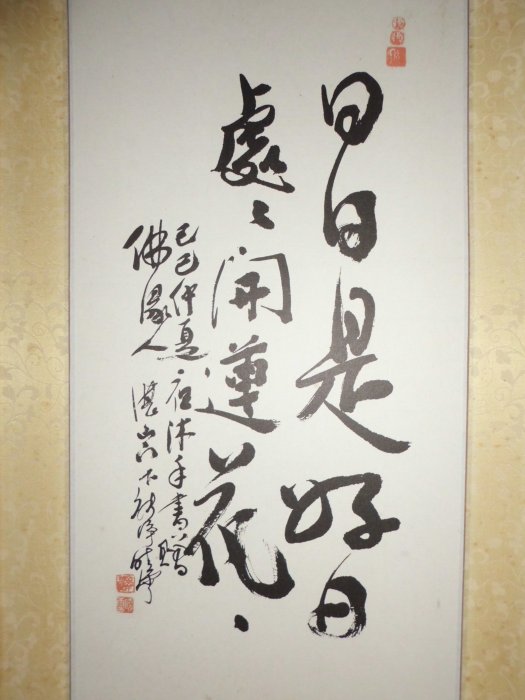 日日是好日
處々開蓮花
己巳仲夏 沐手書贈
佛緣人